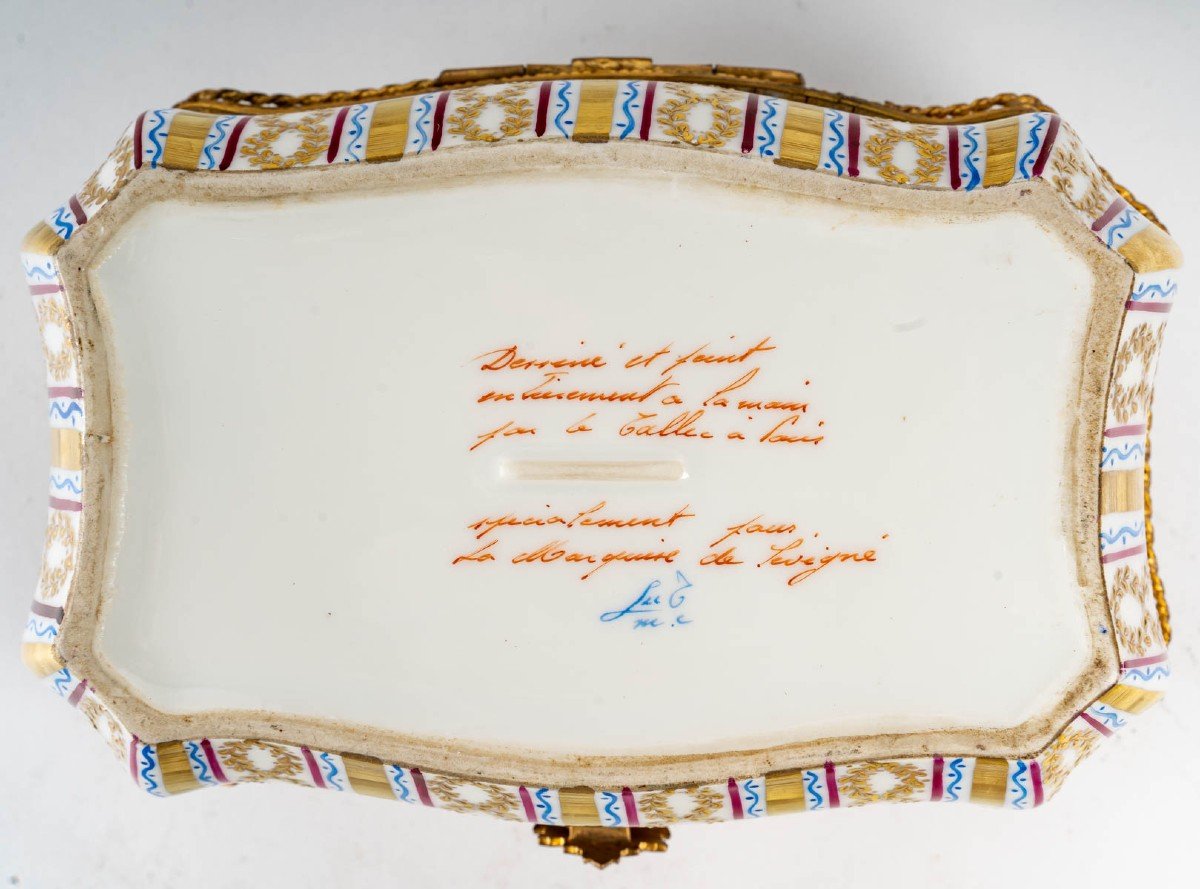 Dessiné et peint
entièrement a la main
par le Tallec à Paris
spécialement pour
La Marquise de Sévigné